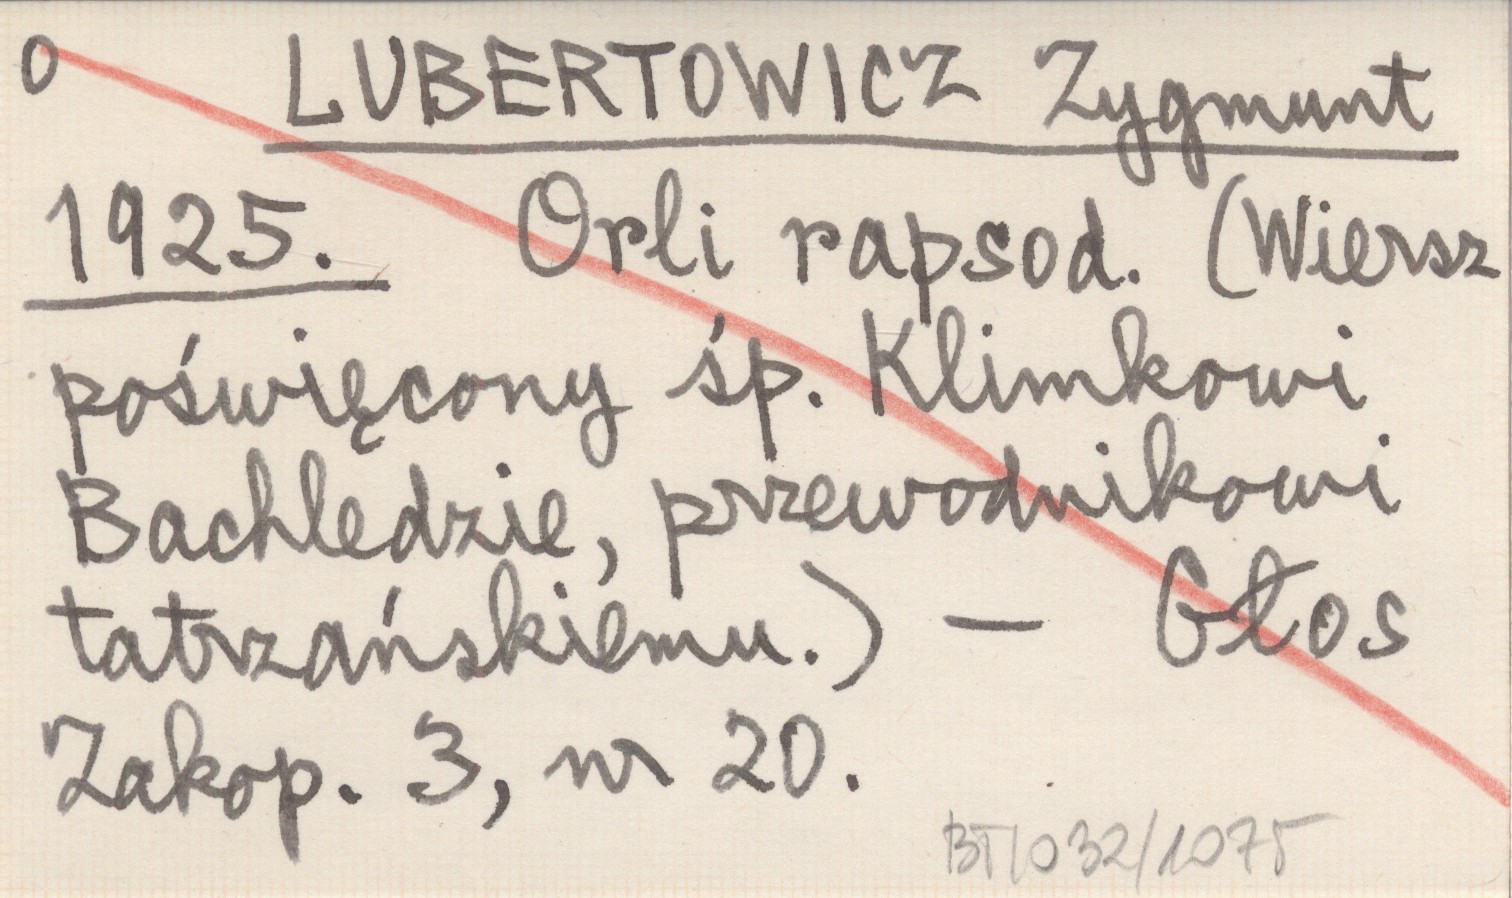 0 LUBERTOWICZ Zygmunt
1925. Orli rapsod. (Wiersz
poświęcony śp. Klimkowi
Bachledzie, przewodnikowi
tatrzańskiemu.) — Głos
Zakop. 3, nr 20.
BT/032/1075